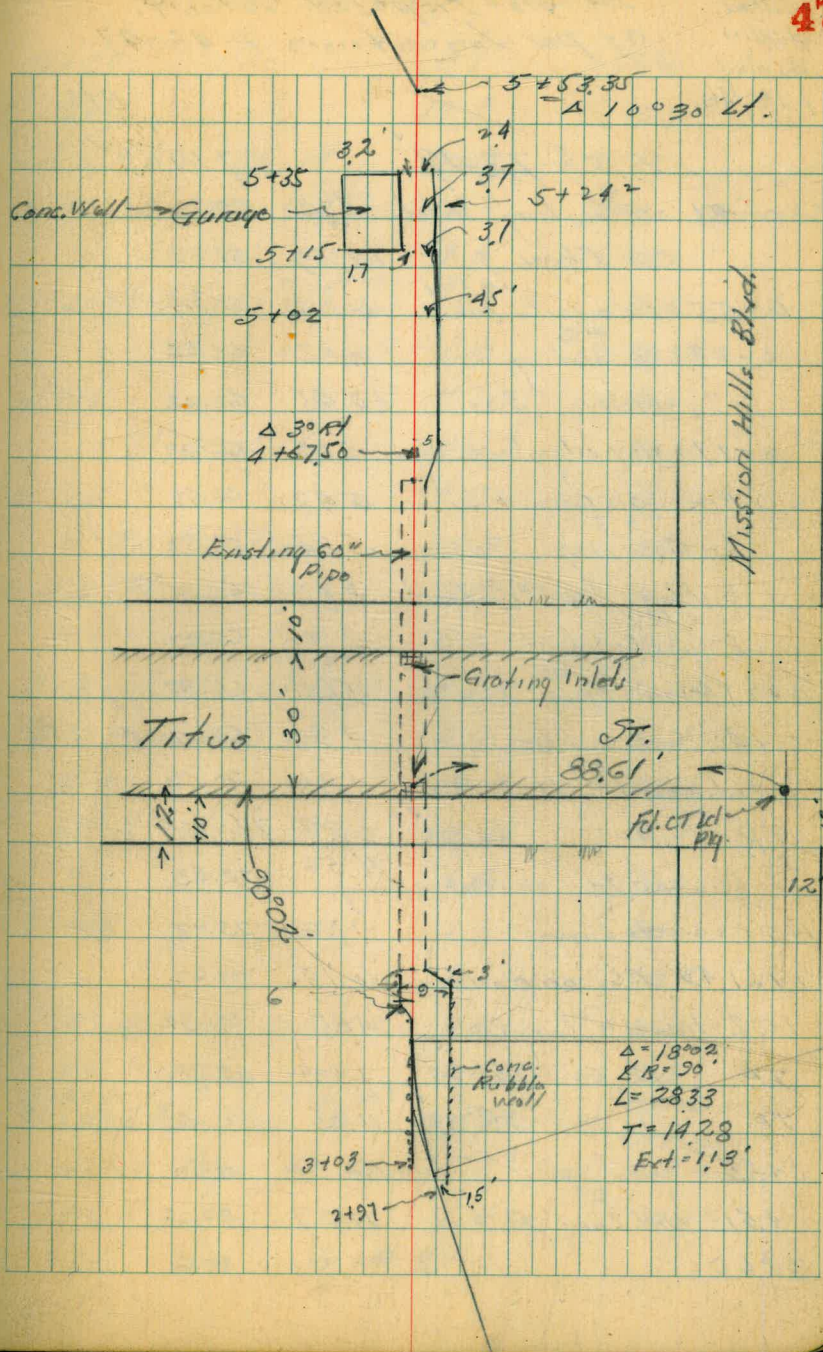 5+53.35
= Δ 10°30' Lt.
2.4
3.2'
5+35
3.7
5+24²
Conc. Wall → Garage
3.7
5+15
1.7
4.5'
5+02
Mission Hills Blvd.
Δ 3° Rt
4+67.50
5
Existing 60"
Pipe
10'
Grating Inlets
30'
Titus ST.
88.61'
12'
10'
Fd. CT Ld
Plg
12
90°02'
3'
6'
9
Conc.
Rubble
Wall
Δ=18°02
R=90'
L=28.33
T=14.28
Ext.=1.13'
3+03
1.5'
2+97